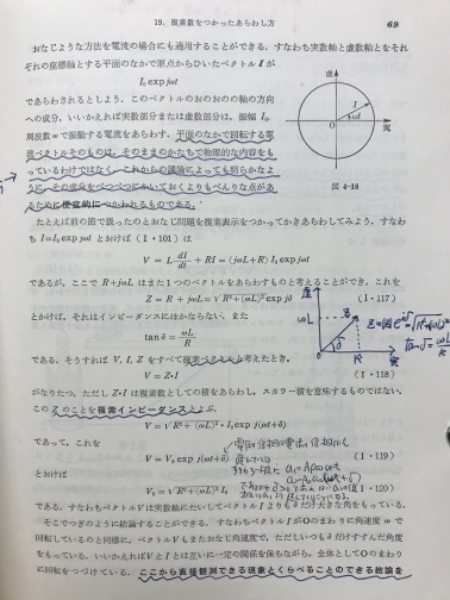 19. 複素数をつかったあらわし方
69
おなじような方法を電流の場合にも適用することができる. すなわち実数軸と虚数軸とをそれ
ぞれの座標軸とする平面のなかで原点からひいたベクトル I が
I₀ exp jωt
であらわされるとしよう. このベクトルのおのおのの軸の方向
への成分, いいかえれば実数部分または虚数部分は, 振幅 I₀,
周波数 ω で振動する電流をあらわす. 平面のなかで回転する電
流ベクトルそのものは, そのままのかたちで物理的な内容をも
っているわけではなく, これからの議論によっても明らかなよ
うに, その成分をべつべつにみいておくよりもべんりな点があ
るために便宜的につかわれるものである.
虚
I
ωt
O
実
図 4-18
たとえば前の節で扱ったのとおなじ問題を複素表示をつかってかきあらわしてみよう. すなわ
ち I=I₀ exp jωt とおけば (I・101) は
V = L dI/dt + RI = (jωL+R) I₀ exp jωt
であるが, ここで R+jωL はまた1つのベクトルをあらわすものと考えることができ, これを
Z = R + jωL = √R²+(ωL)² exp jδ (I・117)
とかけば, それはインピーダンスにほかならない. また
tan δ = ωL/R
である. そうすれば V, I, Z をすべて複素ベクトルと考えたとき,
V = Z・I (I・118)
虚
ωL
Z
δ
O
R
実
tan δ = ωL/R
がなりたつ. ただし Z・I は複素数としての積をあらわし, スカラー積を意味するものではない.
この Z のことを複素インピーダンスとよぶ.
V = √R²+(ωL)²・I₀ exp j(ωt+δ)
であって, これを
V = V₀ exp j(ωt+δ) (I・119)
とおけば
V₀ = √R²+(ωL)² I₀ (I・120)
である. すなわちベクトル V は実数軸にたいしてベクトル I よりも δ だけ大きな角をもっている.
そこでつぎのように結論することができる. すなわちベクトル I が O のまわりに角速度 ω で
回転しているのと同様に, ベクトル V もまたおなじ角速度で, ただしいつも δ だけすすんだ角度
をもっている. いいかえれば V と I とは互いに一定の関係を保ちながら, 全体として O のまわり
に回転をつづけている. ここから直接観測できる現象とくらべることのできる結論を